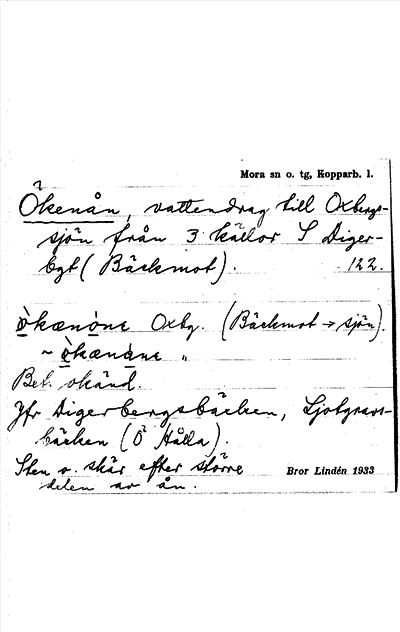 Mora sn o. tg, Kopparb. l.
Ökenån, vattendrag till Oxbergs-
sjön från 3 källor S Diger-
bgt (Bäckmot). 122.
Oxbg. (Bäckmot → sjön).
~ "
Bet. okänd.
Jfr Digerbergsbäcken,
bäcken (Ö Hålla).
Sten o. skär efter större
delen av ån.
Bror Lindén 1933